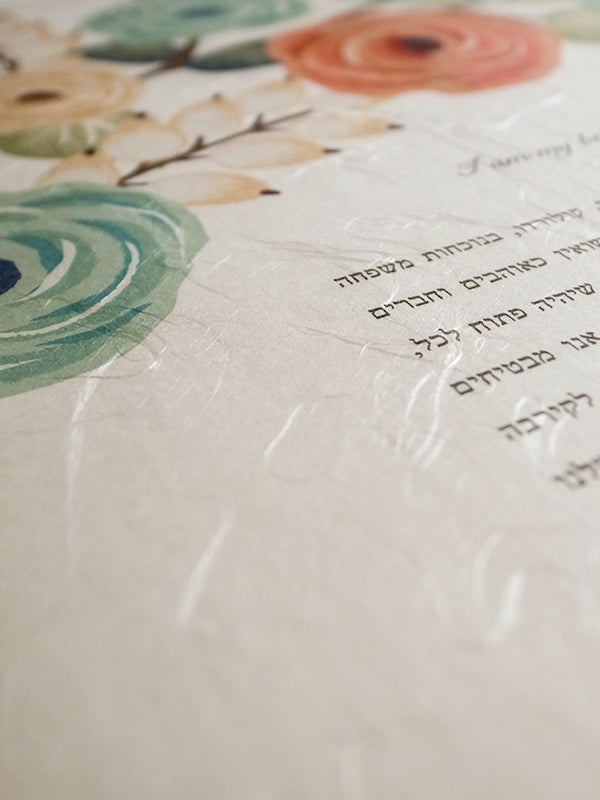 I am my be
קולורדו, בנוכחות משפחה
כאוהבים וחברים
שיהיה פתוח לכל,
אנו מבטיחים
לקירבה